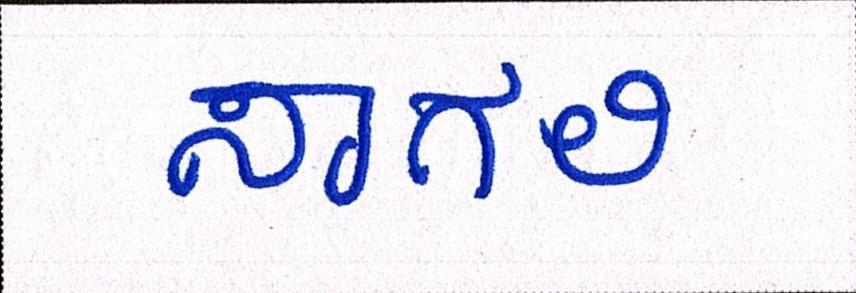 ಸಾಗಲಿ